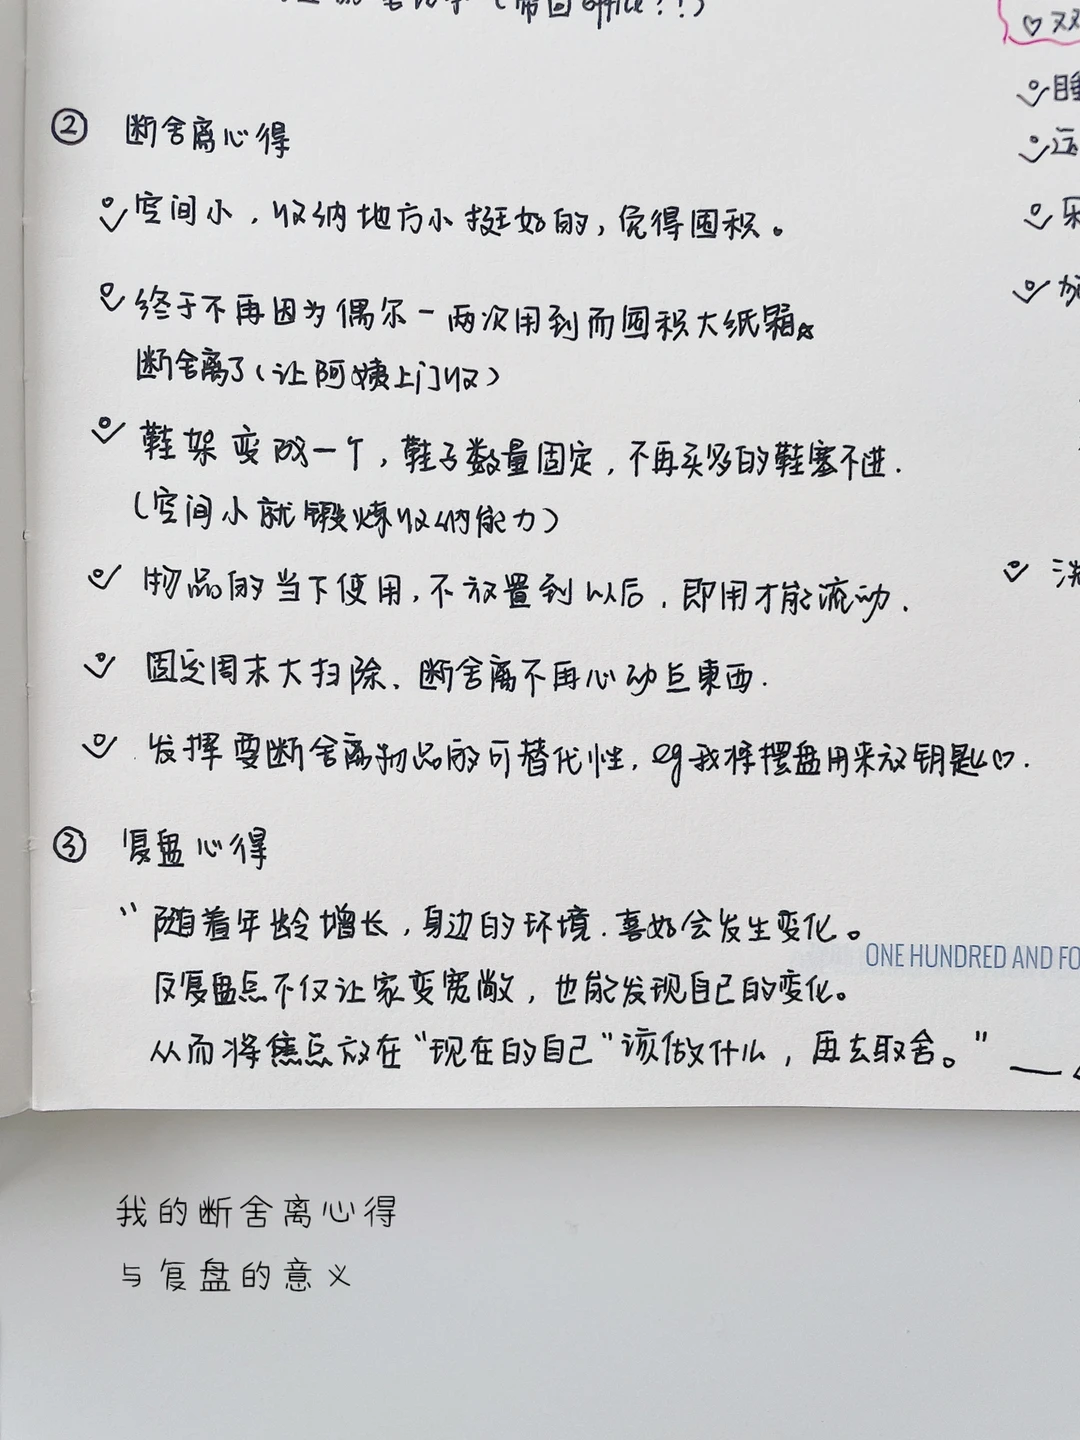 (带回office?!)
② 断舍离心得
空间小，收纳地方小挺好的，免得囤积。
终于不再因为偶尔一两次用到而囤积大纸箱。
断舍离了（让阿姨上门收）
鞋架变成一个，鞋子数量固定，不再买多的鞋塞不进.
（空间小就锻炼收纳能力）
物品的当下使用，不放置到以后，即用才能流动.
固定周末大扫除、断舍离不再心动旦東西.
发挥要断舍离物品的可替代性，eg我将摆盘用来放钥匙♡.
③ 复盘心得
“随着年龄增长，身边的环境.喜好会发生变化。
反复盘点不仅让家变宽敞，也能发现自己的变化。
从而将焦点放在“现在的自己”该做什么，再去取舍。”
ONE HUNDRED AND FO
♡双
睡
运
洗
我的断舍离心得
与复盘的意义